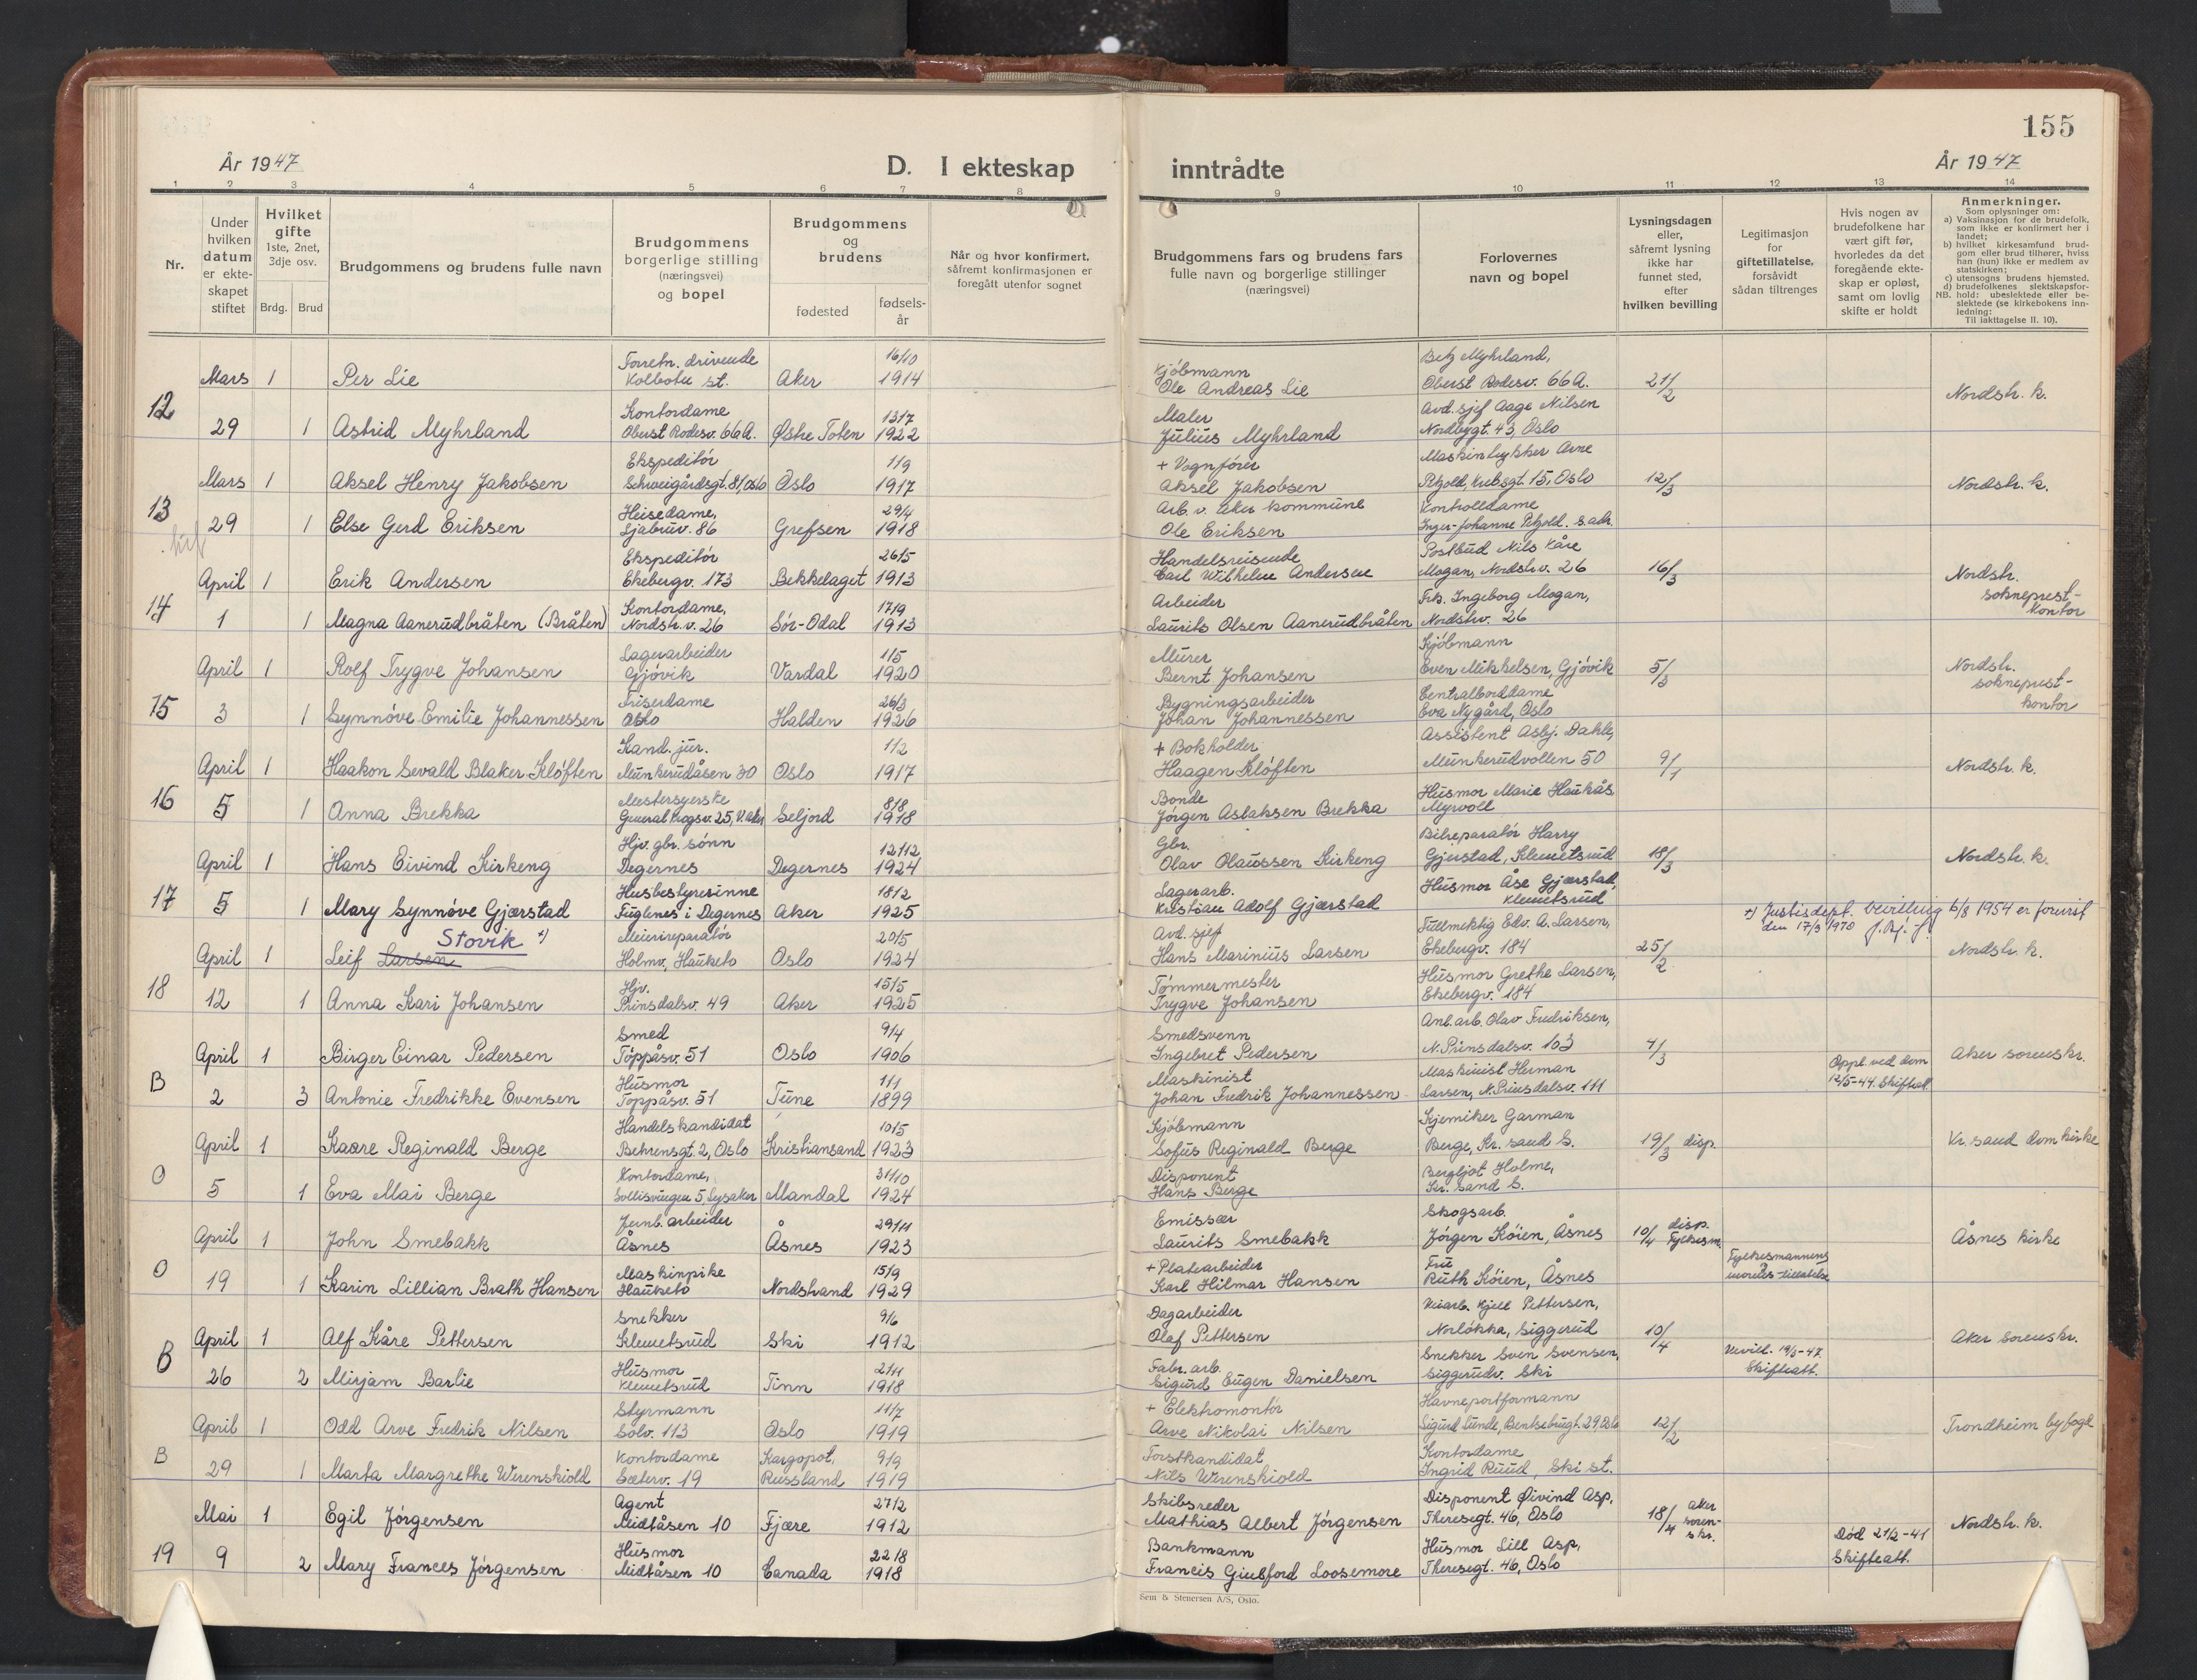 155
År 1947
D. I ekteskap inntrådte
År 1947
1 2 3 4 5 6 7 8 9 10 11 12 13 14
Nr.
Under hvilken datum er ekte-skapet stiftet
Hvilket gifte 1ste, 2net, 3dje osv.
Brdg. Brud
Brudgommens og brudens fulle navn
Brudgommens borgerlige stilling (næringsvei) og bopel
Brudgommens og brudens
fødested
fødsels-år
Når og hvor konfirmert, såfremt konfirmasjonen er foregått utenfor sognet
Brudgommens fars og brudens fars fulle navn og borgerlige stillinger (næringsvei)
Forlovernes navn og bopel
Lysningsdagen eller, såfremt lysning ikke har funnet sted, efter hvilken bevilling
Legitimasjon for giftetillatelse, forsåvidt sådan tiltrenges
Hvis nogen av brudefolkene har vært gift før, hvorledes da det foregående ekte-skap er opløst, samt om lovlig skifte er holdt
Anmerkninger.
Som oplysninger om:
a) Vaksinasjon for de brudefolk, som ikke er konfirmert her i landet;
b) hvilket kirkesamfund brud-gom eller brud tilhører, hviss han (hun) ikke er medlem av statskirken;
c) utensogns brudens hjemsted.
d) brudefolkenes slektskapsfor-
NB. hold: ubeslektede eller be-slektede (se kirkebokens inn-ledning:
Til iakttagelse II. 10).
12
Mars 1 Per Lie Forretn. drivende Kolbotn st. Aker 16/10 1914 Kjøbmann Ole Andreas Lie Betz Myhrland, Oberst Rodesv. 66 A. 21/2 Nordstr. k.
29 1 Astrid Myhrland Kontordame Oberst Rodesv. 66 A. Østre Toten 13/7 1922 Maler Julius Myhrland Avd. sjef Aage Nilsen Nordbygt. 43, Oslo
13
Mars 1 Aksel Henry Jakobsen Ekspeditør Schweigårdsgt. 81, Oslo Oslo 1/9 1917 + Vognfører Aksel Jakobsen Maskintrykker Arne Petzold, Kubsgt. 15, Oslo 12/3 Nordstr. k.
29 1 Else Gerd Eriksen Heisedame, Ljabruv. 86 Grefsen 29/4 1918 Arb. v. Aker kommune Ole Eriksen Kontrolldame Inger-Johanne Petzold. s. adr.
14
April 1 Erik Andersen Ekspeditør Ekebergv. 173 Bekkelaget 26/5 1913 Handelsreisende Carl Wilhelm Andersen Postbud Nils Kåre Mogan, Nordstr.v. 26 16/3 Nordstr. sokneprest-kontor
1 1 Magna Aanerudbråten (Bråten) Kontordame, Nordstr.v. 26 Sør-Odal 17/9 1913 Arbeider Laurits Olsen Aanerudbråten Frk. Ingeborg Mogan, Nordstrv. 26
15
April 1 Rolf Trygve Johansen Lagerarbeider Gjøvik Vardal 1/5 1920 Murer Bernt Johansen Kjøbmann Even Mikkelsen, Gjøvik 5/3 Nordstr. sokneprest-kontor
3 1 Synnøve Emilie Johannessen Friserdame Oslo Halden 26/3 1926 Bygningsarbeider Johan Johannessen Centralborddame Eva Nygård, Oslo
16
April 1 Haakon Sevald Blaker Kløften Kand. jur. Munkerudåsen 30 Oslo 1/2 1917 + Bokholder Haagen Kløften Assistent Asbj. Dahle, Munkerudvollen 50 9/1 Nordstr. k.
5 1 Anna Brekka Mestersyerske General Krogsv. 25, V. Aker Seljord 8/8 1918 Bonde Jørgen Aslaksen Brekka Husmor Marie Haukås Myrvoll
17
April 1 Hans Eivind Kirkeng Hjv. gbr. sønn Degernes Degernes 12/12 1924 Gbr. Olav Olaussen Kirkeng Bilreparatør Harry Gjerstad, Klemetsrud 18/3 Nordstr. k.
5 1 Mary Synnøve Gjærstad Husbestyrerinne Fuglenes i Degernes Aker 18/2 1925 Lagerarb. Kristian Adolf Gjærstad Husmor Åse Gjærstad, Klemetsrud
+) Justisdept. bevilling 6/8 1954 er forevist den 17/3 1970
18
April 1 Leif Larsen Stovik +) Meierireparatør Holmv, Hauketo Oslo 20/5 1924 Avd. sjef Hans Marinius Larsen Fullmektig Edv. A. Larsen, Ekebergv. 184 25/2 Nordstr. k.
12 1 Anna Kari Johansen Hjv. Prinsdalsv. 49 Aker 15/5 1925 Tømmermester Trygve Johansen Husmor Grethe Larsen, Ekebergv. 184
B
April 1 Birger Einar Pedersen Smed Toppåsv. 51 Oslo 9/4 1906 Smedsvenn Ingebret Pedersen Anl. arb. Olav Fredriksen, N. Prinsdalsv. 103 7/3 Aker sorenskr.
2 3 Antonie Fredrikke Evensen Husmor Toppåsv. 51 Tune 1/1 1899 Maskinist Johan Fredrik Johannessen Maskinist Herman Larsen, N. Prinsdalsv. 111 Oppl. ved dom 12/5-44. Skifteatt.
O
April 1 Kaare Reginald Berge Handelskandidat Behrensgt. 2, Oslo Kristiansand 10/5 1923 Kjøbmann Sofus Reginald Berge Kjemiker Garman Berge, Kr. sand S. 19/3 disp. Kr. sand domkirke
5 1 Eva Mai Berge Kontordame, Sollisvingen 5, Lysaker Mandal 31/10 1924 Disponent Hans Berge Bergljot Holme, Kr. sand S.
O
April 1 John Smebakk Jernb. arbeider Åsnes Åsnes 29/11 1923 Emissær Laurits Smebakk Skogsarb. Jørgen Köien, Åsnes 10/4 disp. Fylkesm. Åsnes kirke
19 1 Karin Lillian Brath Hansen Maskinpike Hauketo Nordstrand 15/9 1929 + Platearbeider Karl Hilmar Hansen Fru Ruth Köien, Åsnes Fylkesmannens
B
April 1 Alf Kåre Pettersen Snekker Klemetsrud Ski 9/6 1912 Dagarbeider Olaf Pettersen Kjell Pettersen, Norløkka, Siggerud 10/4 Aker sorenskr.
26 2 Mirjam Barlie Husmor Klemetsrud Tinn 21/1 1918 Fabr. arb. Sigurd Eugen Danielsen Snekker Sven Svensen, Siggerudv. Ski 19/3-47 Skifteatt.
B
April 1 Odd Arve Fredrik Nilsen Styrmann Solv. 113 Oslo 11/7 1919 + Elektromontør Arve Nikolai Nilsen Havneportformann Sigurd Lunde, Bentsebrugt. 29, Oslo 12/2 Trondheim byfogd
29 1 Marta Margrethe Werenskiold Kontordame Sæterv. 19 Kargopol, Russland 9/9 1919 Forstkandidat Nils Werenskiold Kontordame Ingrid Ruud, Ski st.
19
Mai 1 Egil Jörgensen Agent Midtåsen 10 Fjære 27/2 1912 Skibsreder Mathias Albert Jörgensen Disponent Øivind Asp, Theresegt. 46, Oslo 18/4 Aker soren-skr. Nordstr. k.
9 2 Mary Frances Jörgensen Husmor Midtåsen 10 Canada 22/8 1918 Bankmann Francis Giulford Loosemore Husmor Lill Asp, Theresegt. 46, Oslo Død 21/2-41 Skifteatt.
Sem & Stenersen A/S, Oslo.